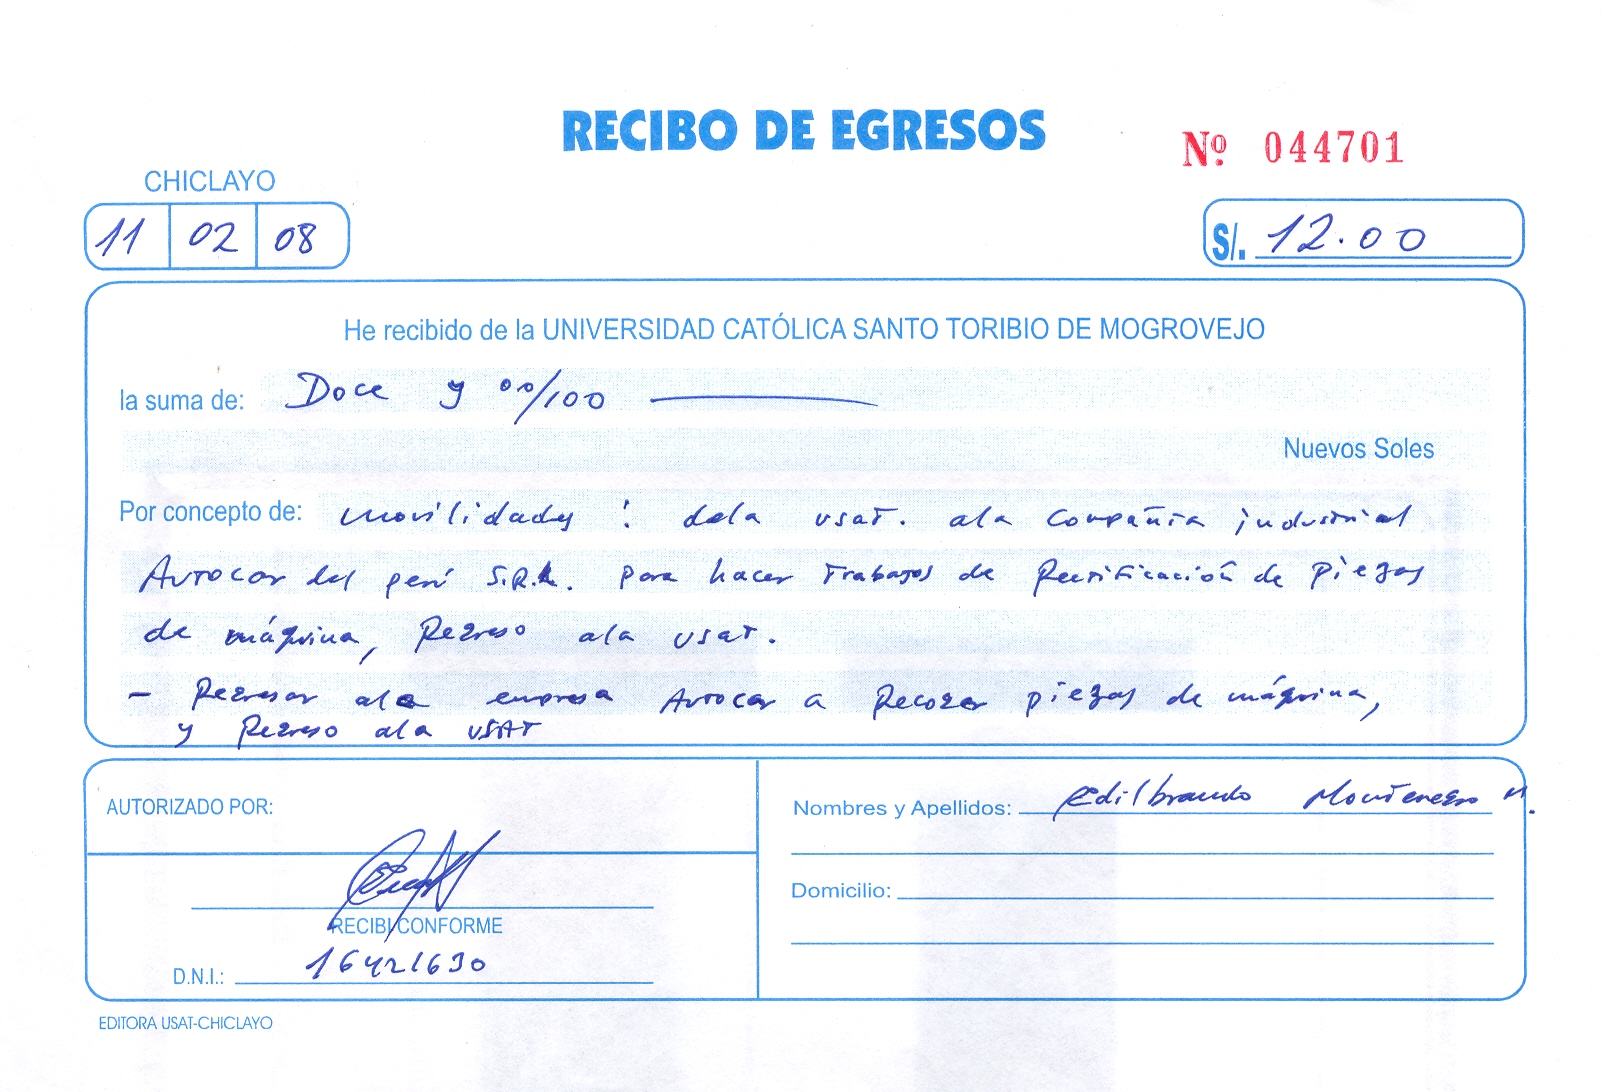 RECIBO DE EGRESOS
Nº 044701
CHICLAYO
11 02 08
S/. 12.00
He recibido de la UNIVERSIDAD CATÓLICA SANTO TORIBIO DE MOGROVEJO
la suma de: Doce y 00/100
Nuevos Soles
Por concepto de: movilidades : dela usat. ala Compañia industrial
Autocar del perú S.R.L. para hacer Trabajos de Rectificación de Piezas
de máquina, Regreso ala usat.
- Regresar ala empresa Autocar a Recoger piezas de máquina,
y Regreso ala USAT
AUTORIZADO POR:
RECIBI CONFORME
D.N.I.: 16421630
Nombres y Apellidos: Edilbrando Montenegro M.
Domicilio:
EDITORA USAT-CHICLAYO